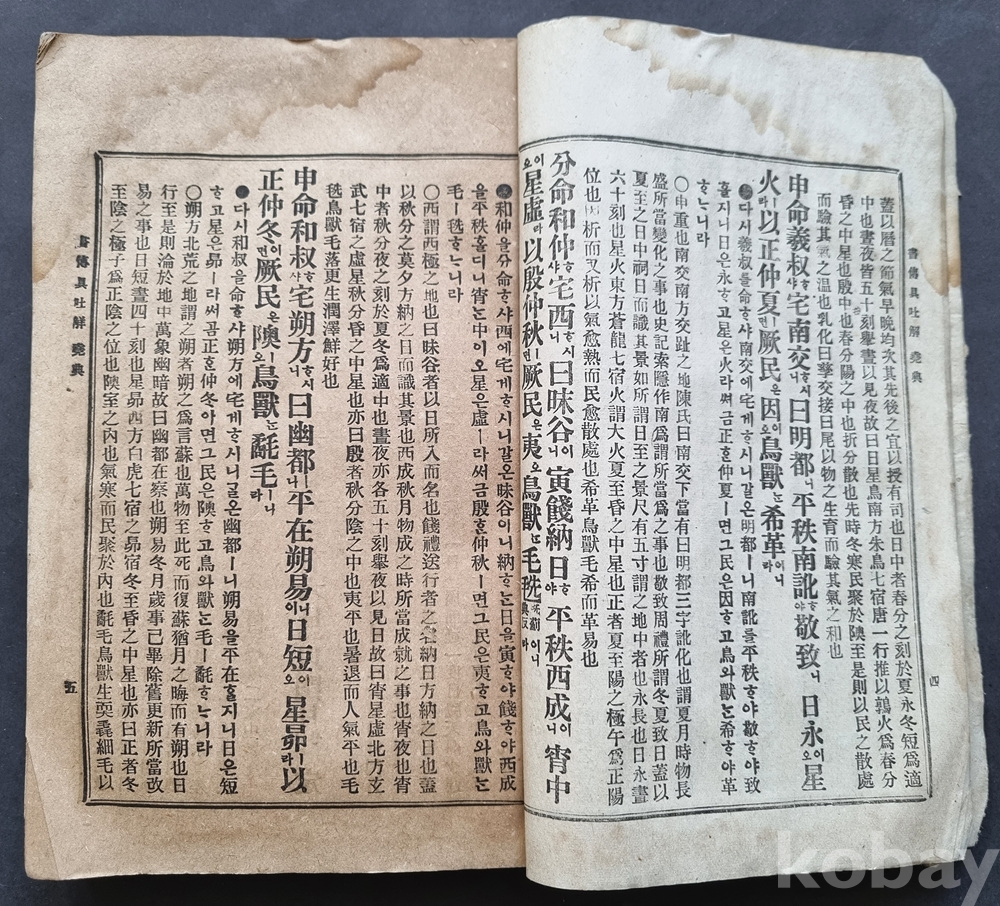 書傳具吐解 堯典
四
蓋以曆之節氣早晩均次其先後之宜以授有司也日中者春分之刻於夏永冬短爲適
中也晝夜皆五十刻擧晝以見夜故曰日星鳥南方朱鳥七宿唐一行推以鶉火爲春分
昏之中星也殷中也春分陽之中也折分散也先時冬寒民聚於隩至是則以民之散處
而驗其氣之温也乳化曰孳交接曰尾以物之生育而驗其氣之和也
申命羲叔ᄒᆞ샤宅南交ᄒᆞ시니曰明都ㅣ니平秩南訛ᄒᆞ야敬致ㅣ니日永이오星
火ㅣ라以正仲夏ㅣ면厥民은因이오鳥獸ᄂᆞᆫ希革이니라
●다시羲叔를命ᄒᆞ샤南交에宅게ᄒᆞ시니갈온明都ㅣ니南訛를平秩ᄒᆞ야敬ᄒᆞ야致
홀지니日은永ᄒᆞ고星은火라써곰正ᄒᆞᆫ仲夏ㅣ면그民은因ᄒᆞ고鳥와獸ᄂᆞᆫ希ᄒᆞ야革
ᄒᆞᄂᆞ니라
○申重也南交南方交趾之地陳氏曰南交下當有曰明都三字訛化也謂夏月時物長
盛所當變化之事也史記索隱作南爲謂所當爲之事也敬致周禮所謂冬夏致日蓋以
夏至之日中祠日而識其景如所謂日至之景尺有五寸謂之地中者也永長也日永晝
六十刻也星火東方蒼龍七宿火謂大火夏至昏之中星也正者夏至陽之極午爲正陽
位也因析而又析以氣愈熱而民愈散處也希革鳥獸毛希而革易也
分命和仲ᄒᆞ샤宅西ᄒᆞ시니曰昧谷이니寅餞納日ᄒᆞ야平秩西成이니宵中
이오星虛ㅣ라以殷仲秋ㅣ면厥民은夷오鳥獸ᄂᆞᆫ毛毨이니라
●和仲을分命ᄒᆞ샤西에宅게ᄒᆞ시니갈온昧谷이니納ᄒᆞᄂᆞᆫ日을寅ᄒᆞ야餞ᄒᆞ야西成
을平秩홀디니宵는中이오星은虛ㅣ라써곰殷ᄒᆞᆫ仲秋ㅣ면그民은夷ᄒᆞ고鳥와獸ᄂᆞᆫ
毛ㅣ毨ᄒᆞᄂᆞ니라
○西謂西極之地也曰昧谷者以日所入而名也餞禮送行者之名納日方納之日也蓋
以秋分之莫夕方納之日而識其景也西成秋月物成之時所當成就之事也宵夜也宵
中者秋分夜之刻於夏冬爲適中也晝夜亦各五十刻擧夜以見日故曰宵星虛北方玄
武七宿之虛星秋分昏之中星也亦曰殷者秋分陰之中也夷平也暑退而人氣平也毛
毨鳥獸毛落更生潤澤鮮好也
申命和叔ᄒᆞ샤宅朔方ᄒᆞ시니曰幽都ㅣ니平在朔易이니日短이오星昴ㅣ라以
正仲冬이면厥民은隩오鳥獸ᄂᆞᆫ氄毛ㅣ니라
●다시和叔을命ᄒᆞ샤朔方에宅게ᄒᆞ시니갈온幽都ㅣ니朔易을平在홀지니日은短
ᄒᆞ고星은昴ㅣ라써곰正ᄒᆞᆫ仲冬이면그民은隩ᄒᆞ고鳥와獸ᄂᆞᆫ毛ㅣ氄ᄒᆞᄂᆞ니라
○朔方北荒之地謂之朔者朔之爲言蘇也萬物至此死而復蘇猶月之晦而有朔也日
行至是則淪於地中萬象幽暗故曰幽都在察也朔易冬月歲事已畢除舊更新所當改
易之事也日短晝四十刻也星昴西方白虎七宿之昴宿冬至昏之中星也亦曰正者冬
至陰之極子爲正陰之位也隩室之內也氣寒而民聚於內也氄毛鳥獸生耎毳細毛以
書傳具吐解 堯典
五
kobay